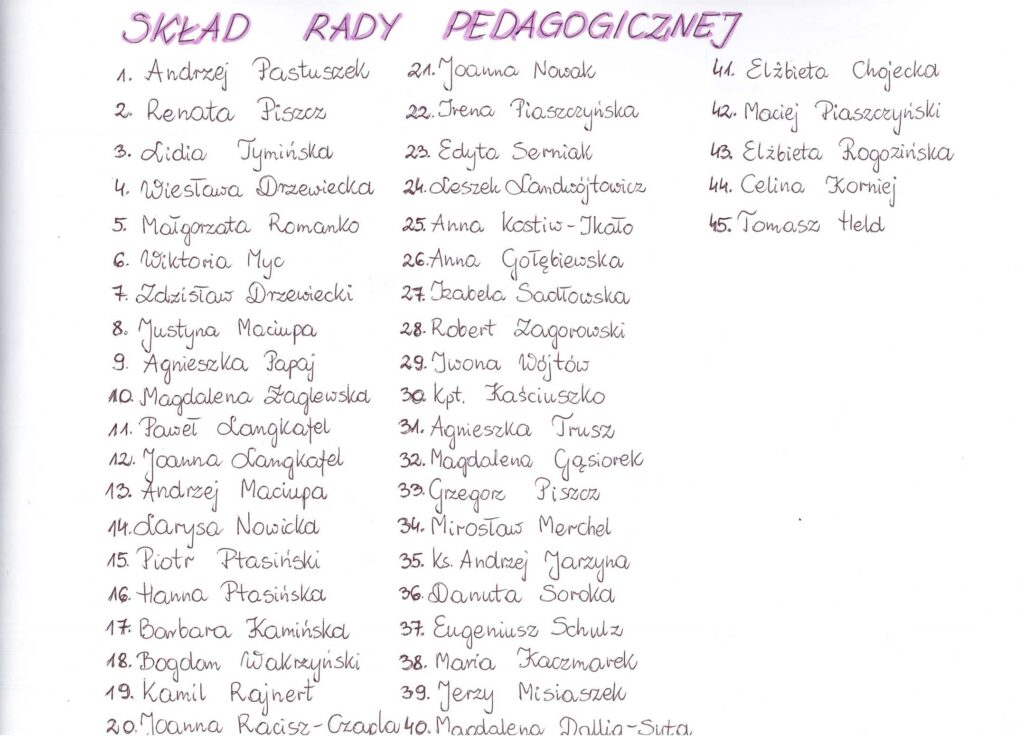 SKŁAD RADY PEDAGOGICZNEJ
1. Andrzej Pastuszek
2. Renata Piszcz
3. Lidia Tymińska
4. Wiesława Drzewiecka
5. Małgorzata Romanko
6. Wiktoria Myc
7. Zdzisław Drzewiecki
8. Justyna Maciupa
9. Agnieszka Papaj
10. Magdalena Żaglewska
11. Paweł Langkafel
12. Joanna Langkafel
13. Andrzej Maciupa
14. Larysa Nowicka
15. Piotr Ptasiński
16. Hanna Ptasińska
17. Barbara Kamińska
18. Bogdan Wakrzyński
19. Kamil Rajnert
20. Joanna Racisz-Czapla
21. Joanna Nowak
22. Irena Piaszczyńska
23. Edyta Serniak
24. Leszek Landwójtowicz
25. Anna Kostiw-Ikało
26. Anna Gołębiewska
27. Izabela Sadłowska
28. Robert Zagorowski
29. Iwona Wójtów
30. Kpt. Kaściuszko
31. Agnieszka Trusz
32. Magdalena Gąsiorek
33. Grzegorz Piszcz
34. Mirosław Merchel
35. ks. Andrzej Jarzyna
36. Danuta Soroka
37. Eugeniusz Schulz
38. Maria Kaczmarek
39. Jerzy Misiaszek
40. Magdalena Dallig-Suta
41. Elżbieta Chojecka
42. Maciej Piaszczyński
43. Elżbieta Rogozińska
44. Celina Korniej
45. Tomasz Held